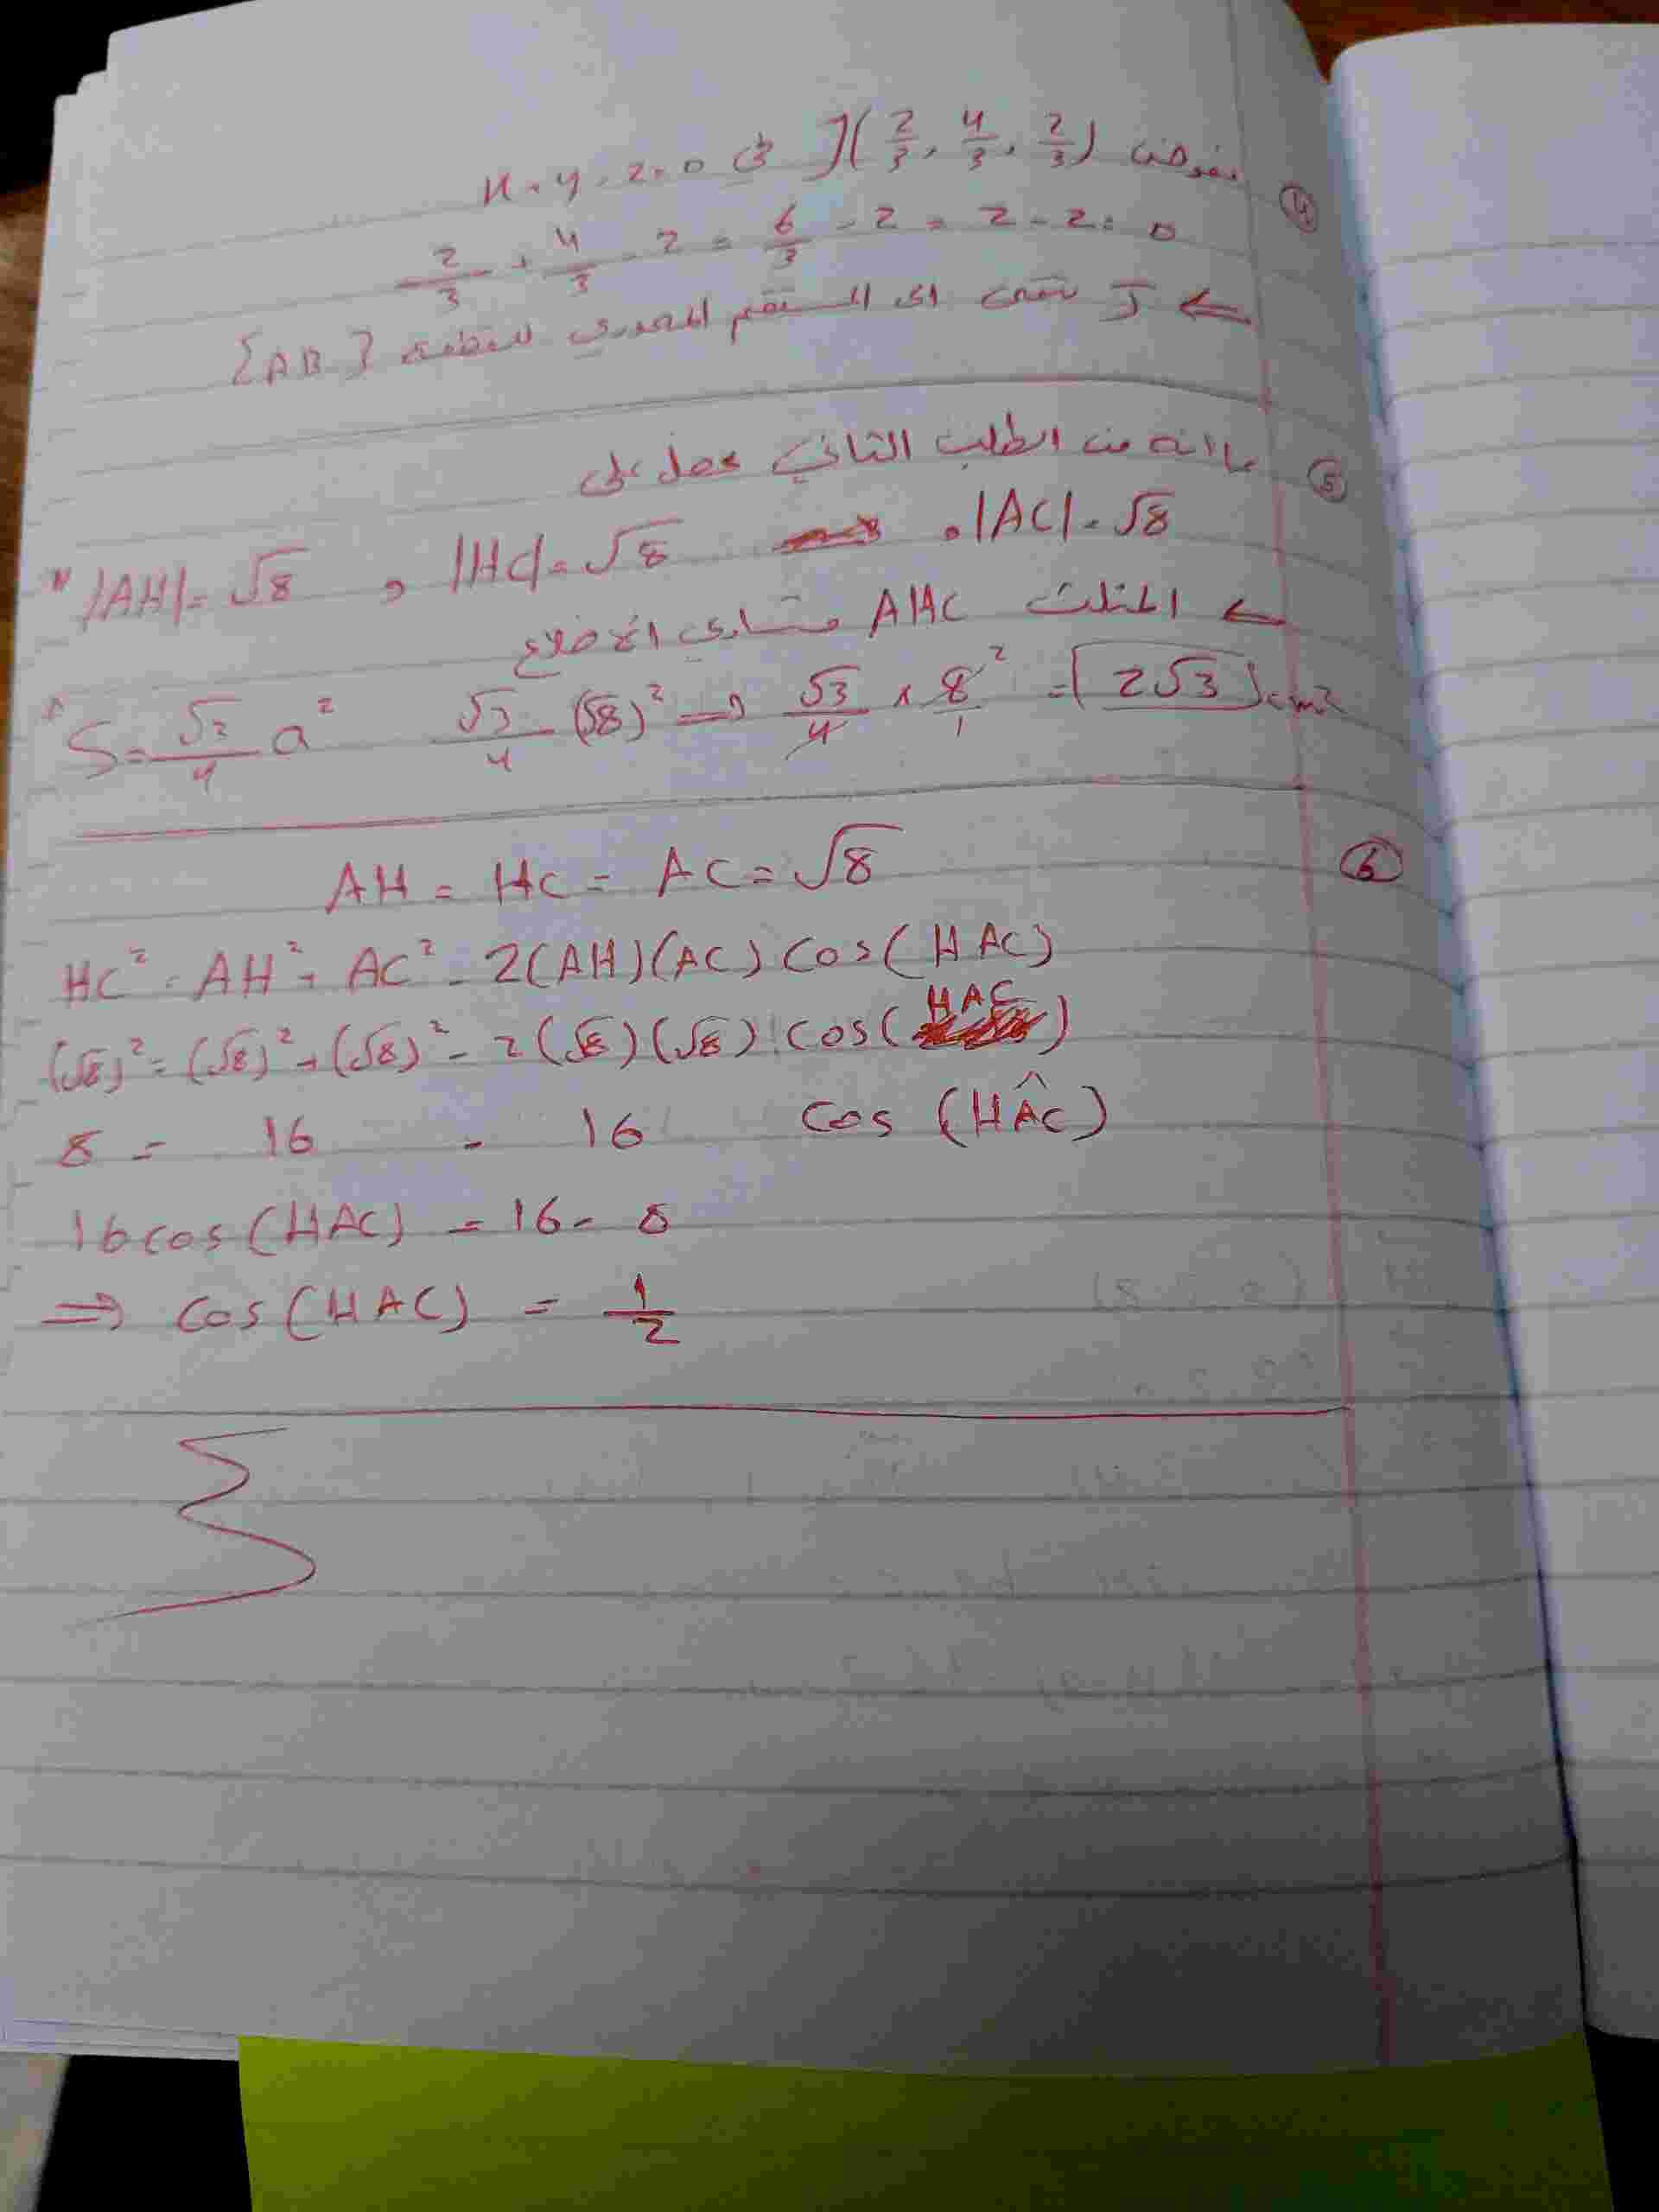 ④ نعوض J(2/3, 4/3, 2/3) في x+y-2=0
2/3 + 4/3 - 2 = 6/3 - 2 = 2 - 2 = 0
⇐ J تنتمي الى المستقيم المحوري للقطعة [AB]
⑤ بما انه من الطلب الثاني نحصل على
|AH|=√8 , |HC|=√8 , |AC|=√8
⇐ المثلث AHC متساوي الاضلاع
S=√3/4 a² √3/4 (√8)² ⇒ √3/4 × 8/1 ² = [2√3] cm²
⑥ AH = HC = AC = √8
HC² = AH² + AC² - 2(AH)(AC) cos(HAC)
(√8)² = (√8)² + (√8)² - 2(√8)(√8) cos(HAC)
8 = 16 - 16 cos (HÂC)
16cos(HAC) = 16 - 8
⇒ cos(HAC) = 1/2